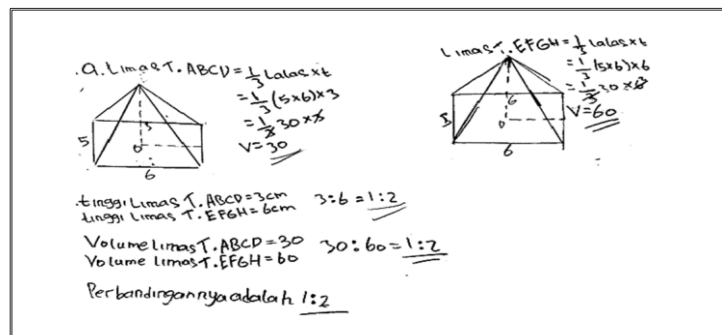 a. Limas T. ABCD = 1/3 Lalas x t
= 1/3 (5x6) x 3
= 1/3 30 x 3
V = 30
5
3
0
6
Limas T. EFGH = 1/3 Lalas x t
= 1/3 (5x6) x 6
= 1/3 30 x 6
V = 60
5
6
0
6
tinggi Limas T. ABCD = 3cm 3:6 = 1:2
tinggi Limas T. EFGH = 6cm
Volume limas T. ABCD = 30 30:60 = 1:2
Volume limas T. EFGH = 60
Perbandingannya adalah 1:2